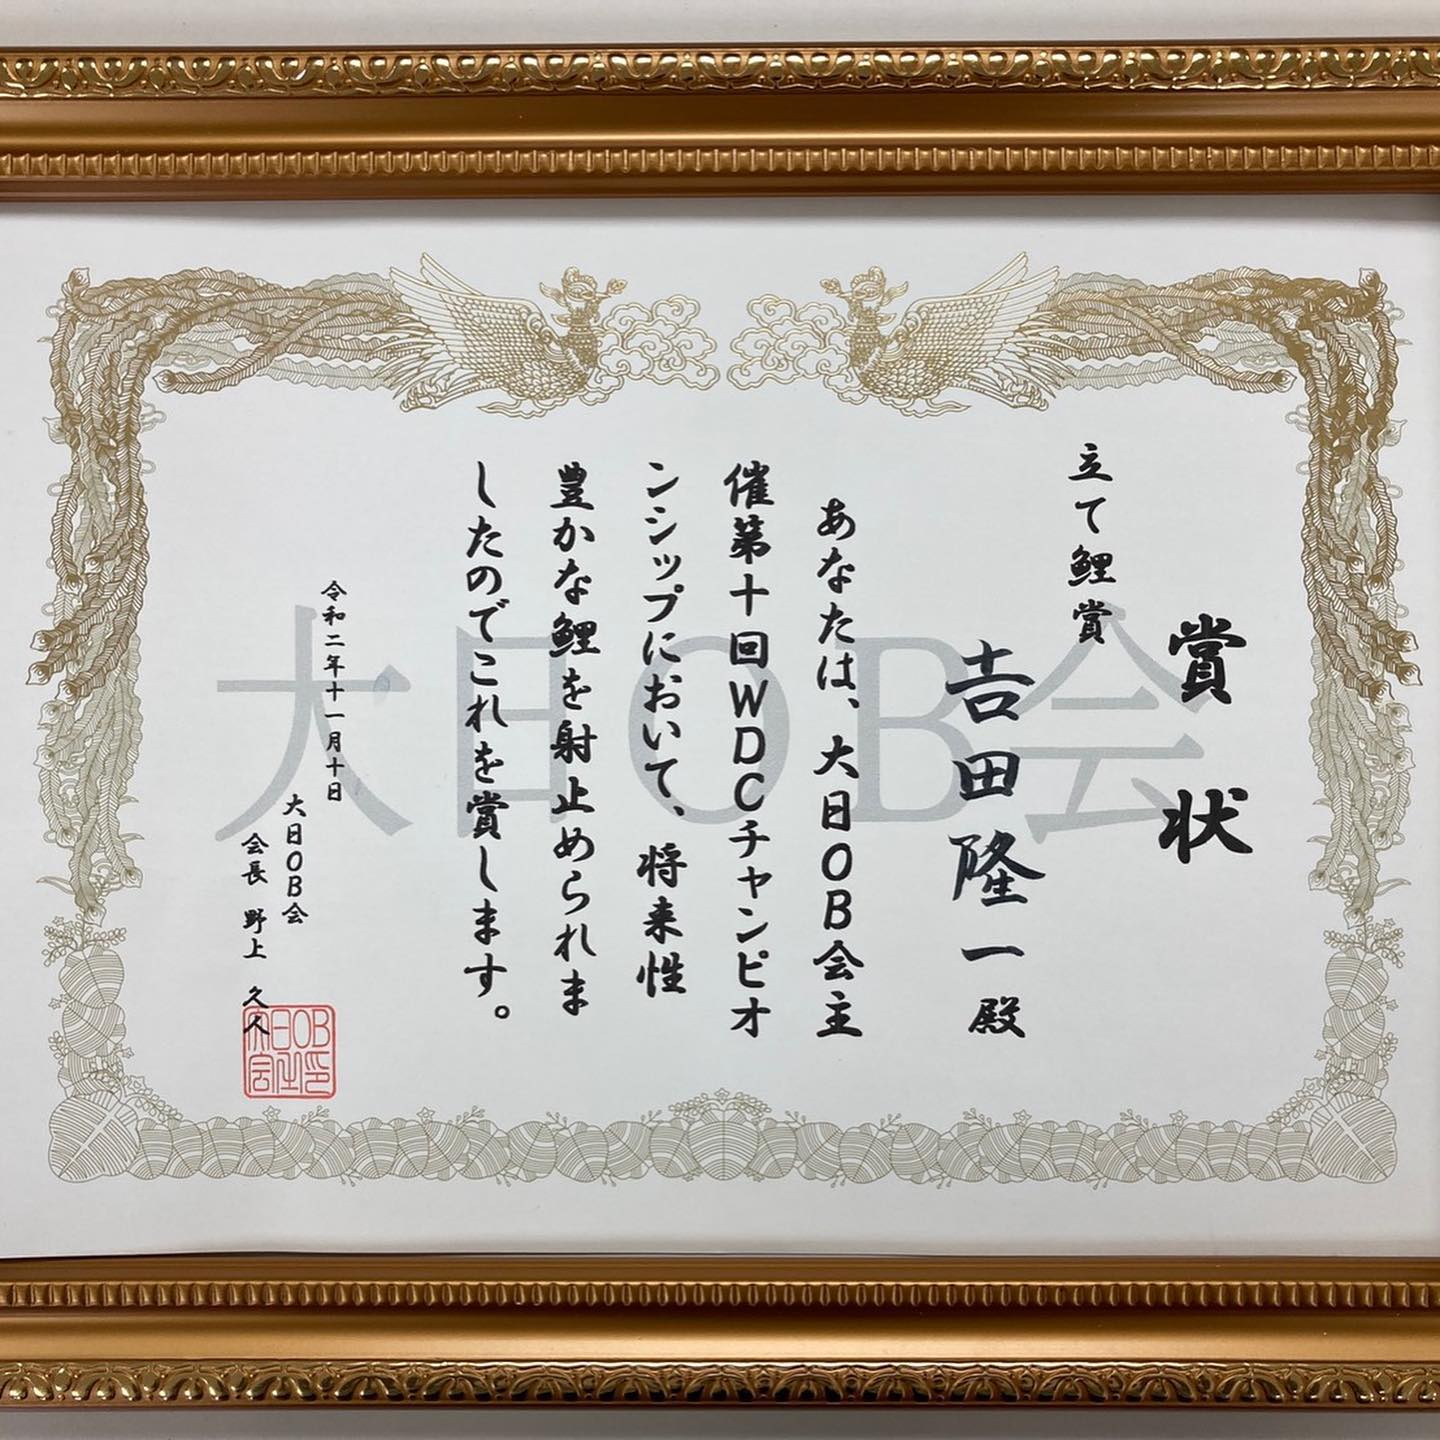 賞状
立て鯉賞
𠮷田隆一殿
あなたは、大日OB会主
催第十回WDCチャンピオ
ンシップにおいて、将来性
豊かな鯉を射止められま
したのでこれを賞します。
令和二年十一月十日
大日OB会
会長 野上 久人
大日OB会